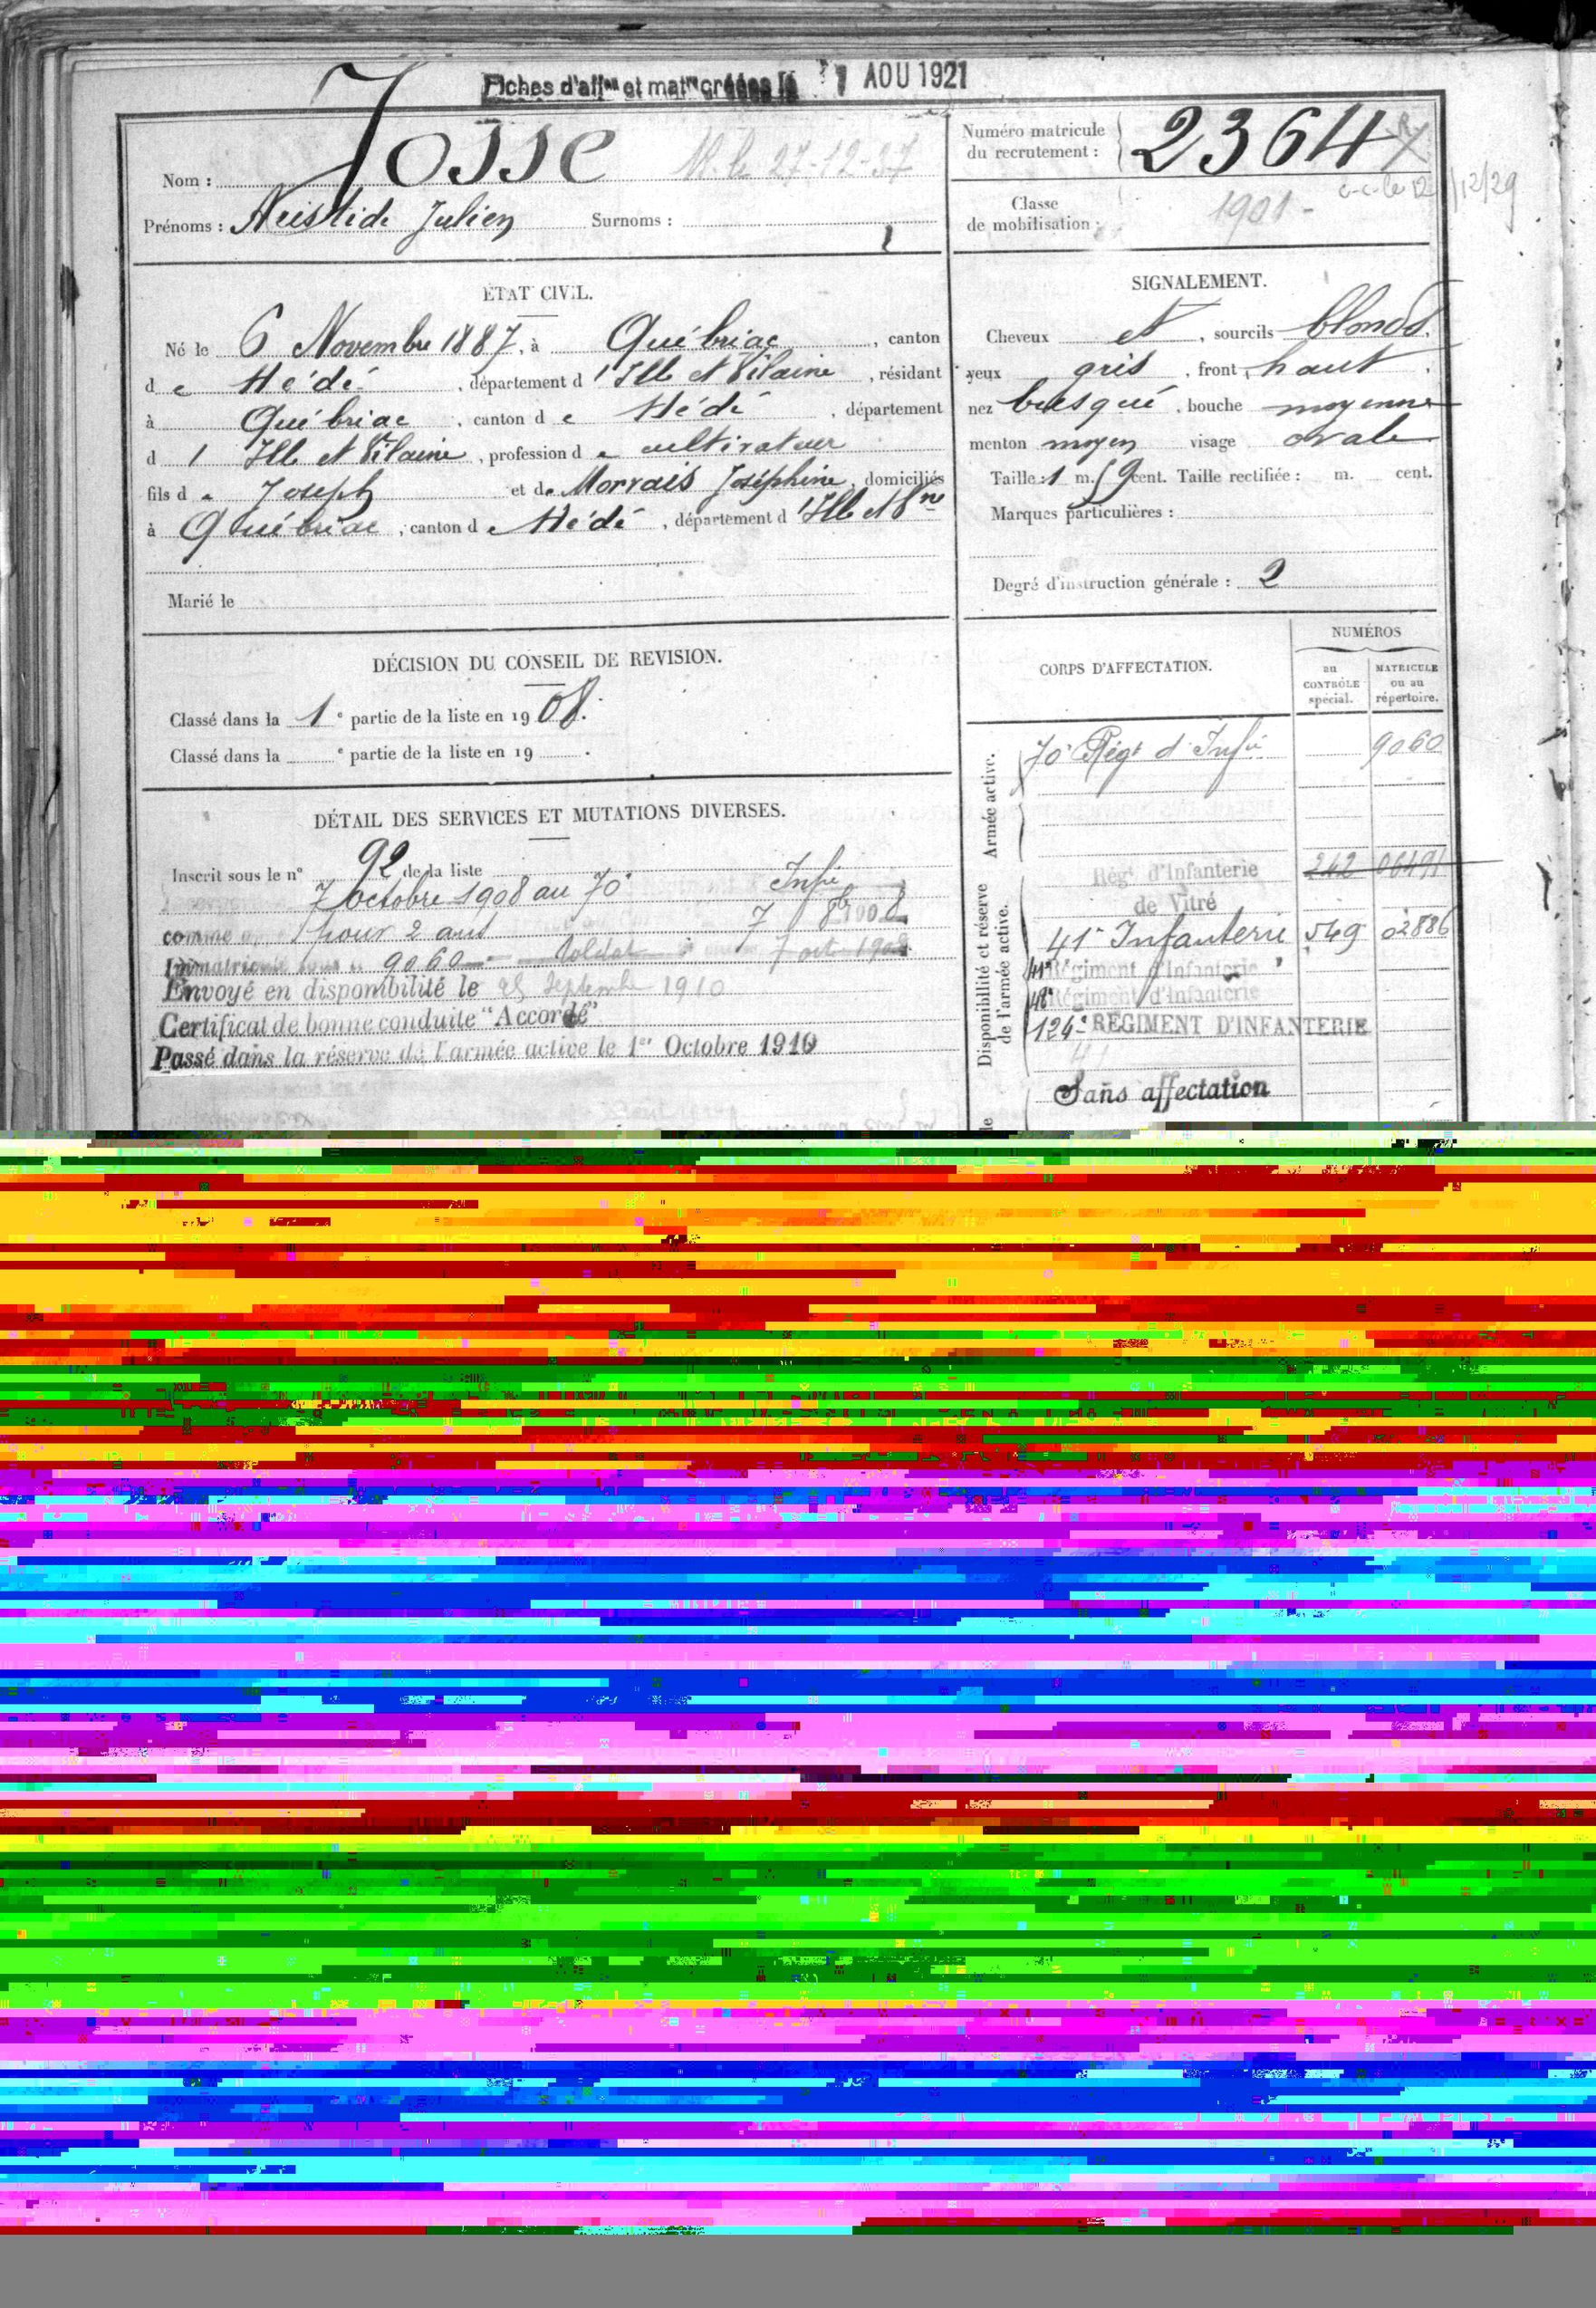 Fiches d'aff^on et mat^le créées le 1 AOU 1921
Nom : Josse R. le 27-12-37
Numéro matricule du recrutement : 2364
Prénoms : Aristide Julien Surnoms :
Classe de mobilisation : 1901 -
12/12/29
ÉTAT CIVIL.
Né le 6 Novembre 1887, à Québriac, canton
de Hédé, département d'Ille et Vilaine, résidant
à Québriac, canton de Hédé, département
d'Ille et Vilaine, profession de cultivateur
fils de Joseph et de Morvais Joséphine, domiciliés
à Québriac, canton de Hédé, département d'Ille et V^ne
Marié le
SIGNALEMENT.
Cheveux et, sourcils blonds,
yeux gris, front haut,
nez busqué, bouche moyenne
menton moyen visage ovale
Taille : 1 m. 59 cent. Taille rectifiée : m. cent.
Marques particulières :
Degré d'instruction générale : 2
DÉCISION DU CONSEIL DE REVISION.
Classé dans la 1e partie de la liste en 1908.
Classé dans la e partie de la liste en 19 .
DÉTAIL DES SERVICES ET MUTATIONS DIVERSES.
Inscrit sous le n° 92 de la liste
7 octobre 1908 au 70e Infie
comme pour 2 ans 7 8b 1908
Immatriculé sous le n° 9060 soldat 7 oct 1908
Envoyé en disponibilité le 25 Septembre 1910
Certificat de bonne conduite "Accordé"
Passé dans la réserve de l'armée active le 1er Octobre 1910
CORPS D'AFFECTATION.
NUMÉROS
au CONTRÔLE spécial.
MATRICULE ou au répertoire.
Armée active.
70e Régt d'Infie 9060
Disponibilité et réserve de l'armée active.
Régt. d'Infanterie 242 06491
de Vitré
41e Infanterie 549 02886
41e Régiment d'Infanterie
48e Régiment d'Infanterie
124e RÉGIMENT D'INFANTERIE
41
Sans affectation